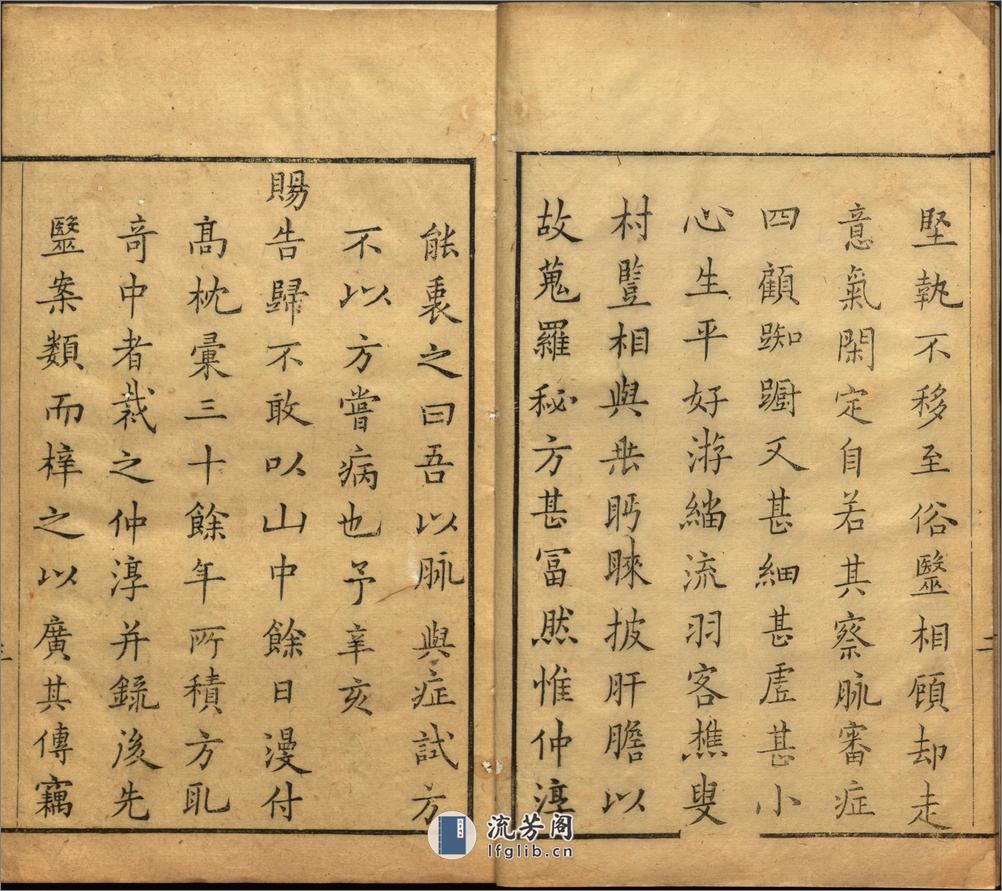 堅執不移至俗毉相顧却走
意氣閑定自若其察脉審症
四顧踟躕又甚細甚虛甚小
心生平好游緇流羽客樵叟
村豎相與垂盻睞披肝膽以
故蒐羅秘方甚冨然惟仲淳
能衷之曰吾以脉與症試方
不以方嘗病也予辛亥
賜告歸不敢以山中餘日漫付
髙枕彙三十餘年所積方取
奇中者裁之仲淳并錄後先
毉案類而梓之以廣其傳竊
二
三
流芳阁
lfglib.cn